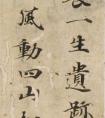 一生遺跡
風動四山